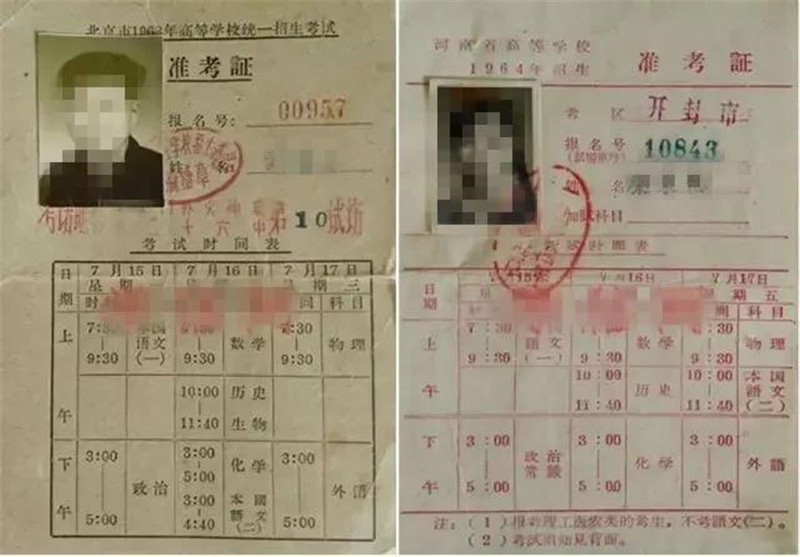 北京市1963年高等学校统一招生考试
准考証
报名号: 00957
姓名
第10试坊
考试时间表
日期 7月15日 7月16日 7月17日
星期 三
科目
上午 7:30 9:30 本国語文(一) 7:30 9:30 数学 7:30 9:30 物理
10:00 11:40 历史 生物
下午 3:00 5:00 政治 3:00 5:00 化学 3:00 5:00 外語
3:00 4:40 本國語文(二)
河南省高等学校
1964年招生
准考証
考区 开封市
报名号 10843
姓名
加試科目
考試时間表
日期 7月15日 7月16日 7月17日
星期五
科目
上午 7:30 9:30 語文(一) 7:30 9:30 数学 7:30 9:30 物理
10:00 11:40 历史 10:00 11:40 本国語文(二)
下午 3:00 5:00 政治常識 3:00 5:00 化学 3:00 5:00 外語
注:(1)报考理工医农类的考生,不考語文(二)。
(2)考試須知見背面。